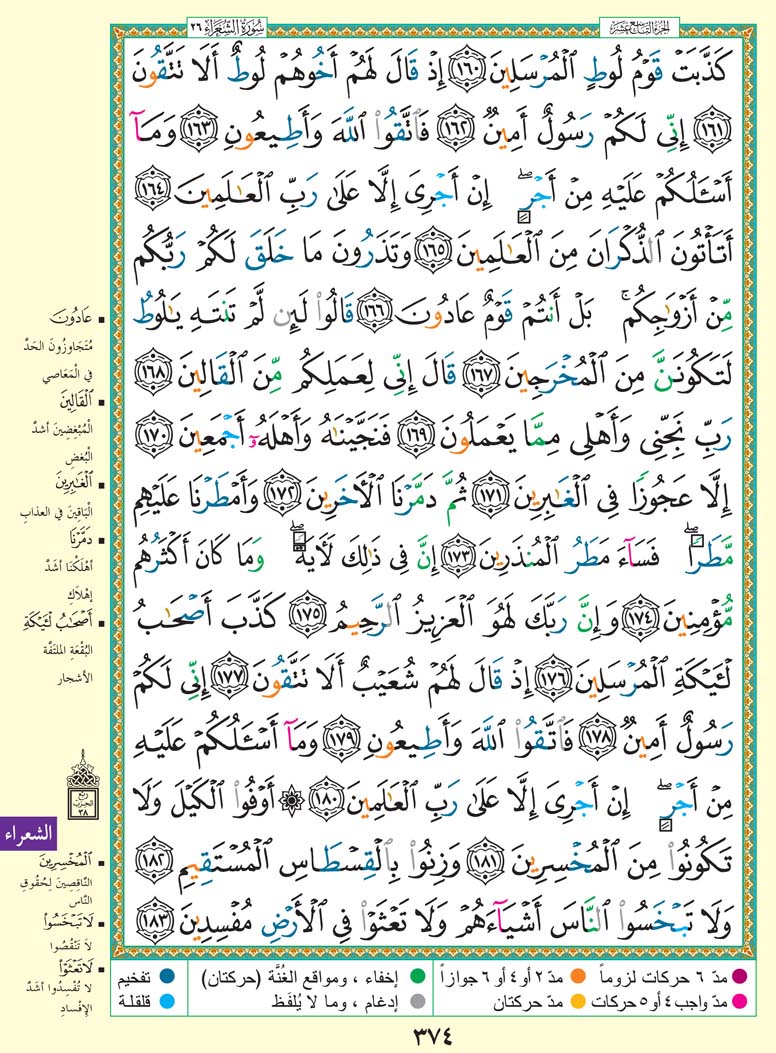 الجزء التاسع عشر
سورة الشعراء ٢٦
كَذَّبَتْ قَوْمُ لُوطٍ ٱلْمُرْسَلِينَ ١٦٠ إِذْ قَالَ لَهُمْ أَخُوهُمْ لُوطٌ أَلَا تَتَّقُونَ
١٦١ إِنِّى لَكُمْ رَسُولٌ أَمِينٌ ١٦٢ فَٱتَّقُوا۟ ٱللَّهَ وَأَطِيعُونِ ١٦٣ وَمَآ
أَسْـَٔلُكُمْ عَلَيْهِ مِنْ أَجْرٍ ۖ إِنْ أَجْرِىَ إِلَّا عَلَىٰ رَبِّ ٱلْعَـٰلَمِينَ ١٦٤
أَتَأْتُونَ ٱلذُّكْرَانَ مِنَ ٱلْعَـٰلَمِينَ ١٦٥ وَتَذَرُونَ مَا خَلَقَ لَكُمْ رَبُّكُم
مِّنْ أَزْوَٰجِكُم ۚ بَلْ أَنتُمْ قَوْمٌ عَادُونَ ١٦٦ قَالُوا۟ لَئِن لَّمْ تَنتَهِ يَـٰلُوطُ
لَتَكُونَنَّ مِنَ ٱلْمُخْرَجِينَ ١٦٧ قَالَ إِنِّى لِعَمَلِكُم مِّنَ ٱلْقَالِينَ ١٦٨
رَبِّ نَجِّنِى وَأَهْلِى مِمَّا يَعْمَلُونَ ١٦٩ فَنَجَّيْنَـٰهُ وَأَهْلَهُۥٓ أَجْمَعِينَ ١٧٠
إِلَّا عَجُوزًا فِى ٱلْغَـٰبِرِينَ ١٧١ ثُمَّ دَمَّرْنَا ٱلْـَٔاخَرِينَ ١٧٢ وَأَمْطَرْنَا عَلَيْهِم
مَّطَرًا ۖ فَسَآءَ مَطَرُ ٱلْمُنذَرِينَ ١٧٣ إِنَّ فِى ذَٰلِكَ لَـَٔايَةً ۖ وَمَا كَانَ أَكْثَرُهُم
مُّؤْمِنِينَ ١٧٤ وَإِنَّ رَبَّكَ لَهُوَ ٱلْعَزِيزُ ٱلرَّحِيمُ ١٧٥ كَذَّبَ أَصْحَـٰبُ
لْـَٔيْكَةِ ٱلْمُرْسَلِينَ ١٧٦ إِذْ قَالَ لَهُمْ شُعَيْبٌ أَلَا تَتَّقُونَ ١٧٧ إِنِّى لَكُمْ
رَسُولٌ أَمِينٌ ١٧٨ فَٱتَّقُوا۟ ٱللَّهَ وَأَطِيعُونِ ١٧٩ وَمَآ أَسْـَٔلُكُمْ عَلَيْهِ
مِنْ أَجْرٍ ۖ إِنْ أَجْرِىَ إِلَّا عَلَىٰ رَبِّ ٱلْعَـٰلَمِينَ ١٨٠ ۞ أَوْفُوا۟ ٱلْكَيْلَ وَلَا
تَكُونُوا۟ مِنَ ٱلْمُخْسِرِينَ ١٨١ وَزِنُوا۟ بِٱلْقِسْطَاسِ ٱلْمُسْتَقِيمِ ١٨٢
وَلَا تَبْخَسُوا۟ ٱلنَّاسَ أَشْيَآءَهُمْ وَلَا تَعْثَوْا۟ فِى ٱلْأَرْضِ مُفْسِدِينَ ١٨٣
عَادُونَ
مُتَجَاوِزُونَ الحَدَّ
في الْمَعَاصي
ٱلْقَالِينَ
الْمُبْغِضِينَ أشدَّ
الْبُغضِ
ٱلْغَابِرِينَ
الْبَاقِينَ في العذابِ
دَمَّرْنَا
أهْلَكْنَا أشَدَّ
إهْلاكٍ
أَصْحَابُ لْـَٔيْكَةِ
البُقْعَةِ الملتَفَّة
الأشجار
ربع
الحزب
٣٨
الشعراء
ٱلْمُخْسِرِينَ
النَّاقِصِينَ لِحُقُوقِ
النَّاس
لَا تَبْخَسُوا۟
لا تَنْقُصُوا
لَا تَعْثَوْا۟
لا تُفْسِدُوا أشَدَّ
الإفْسادِ
مدّ ٦ حركات لزوماً
مدّ ٢ أو ٤ أو ٦ جوازاً
إخفاء ، ومواقع الغُنَّة (حركتان)
تفخيم
مدّ واجب ٤ أو ٥ حركات
مدّ حركتان
إدغام ، وما لا يُلفَظ
قلقلة
٣٧٤